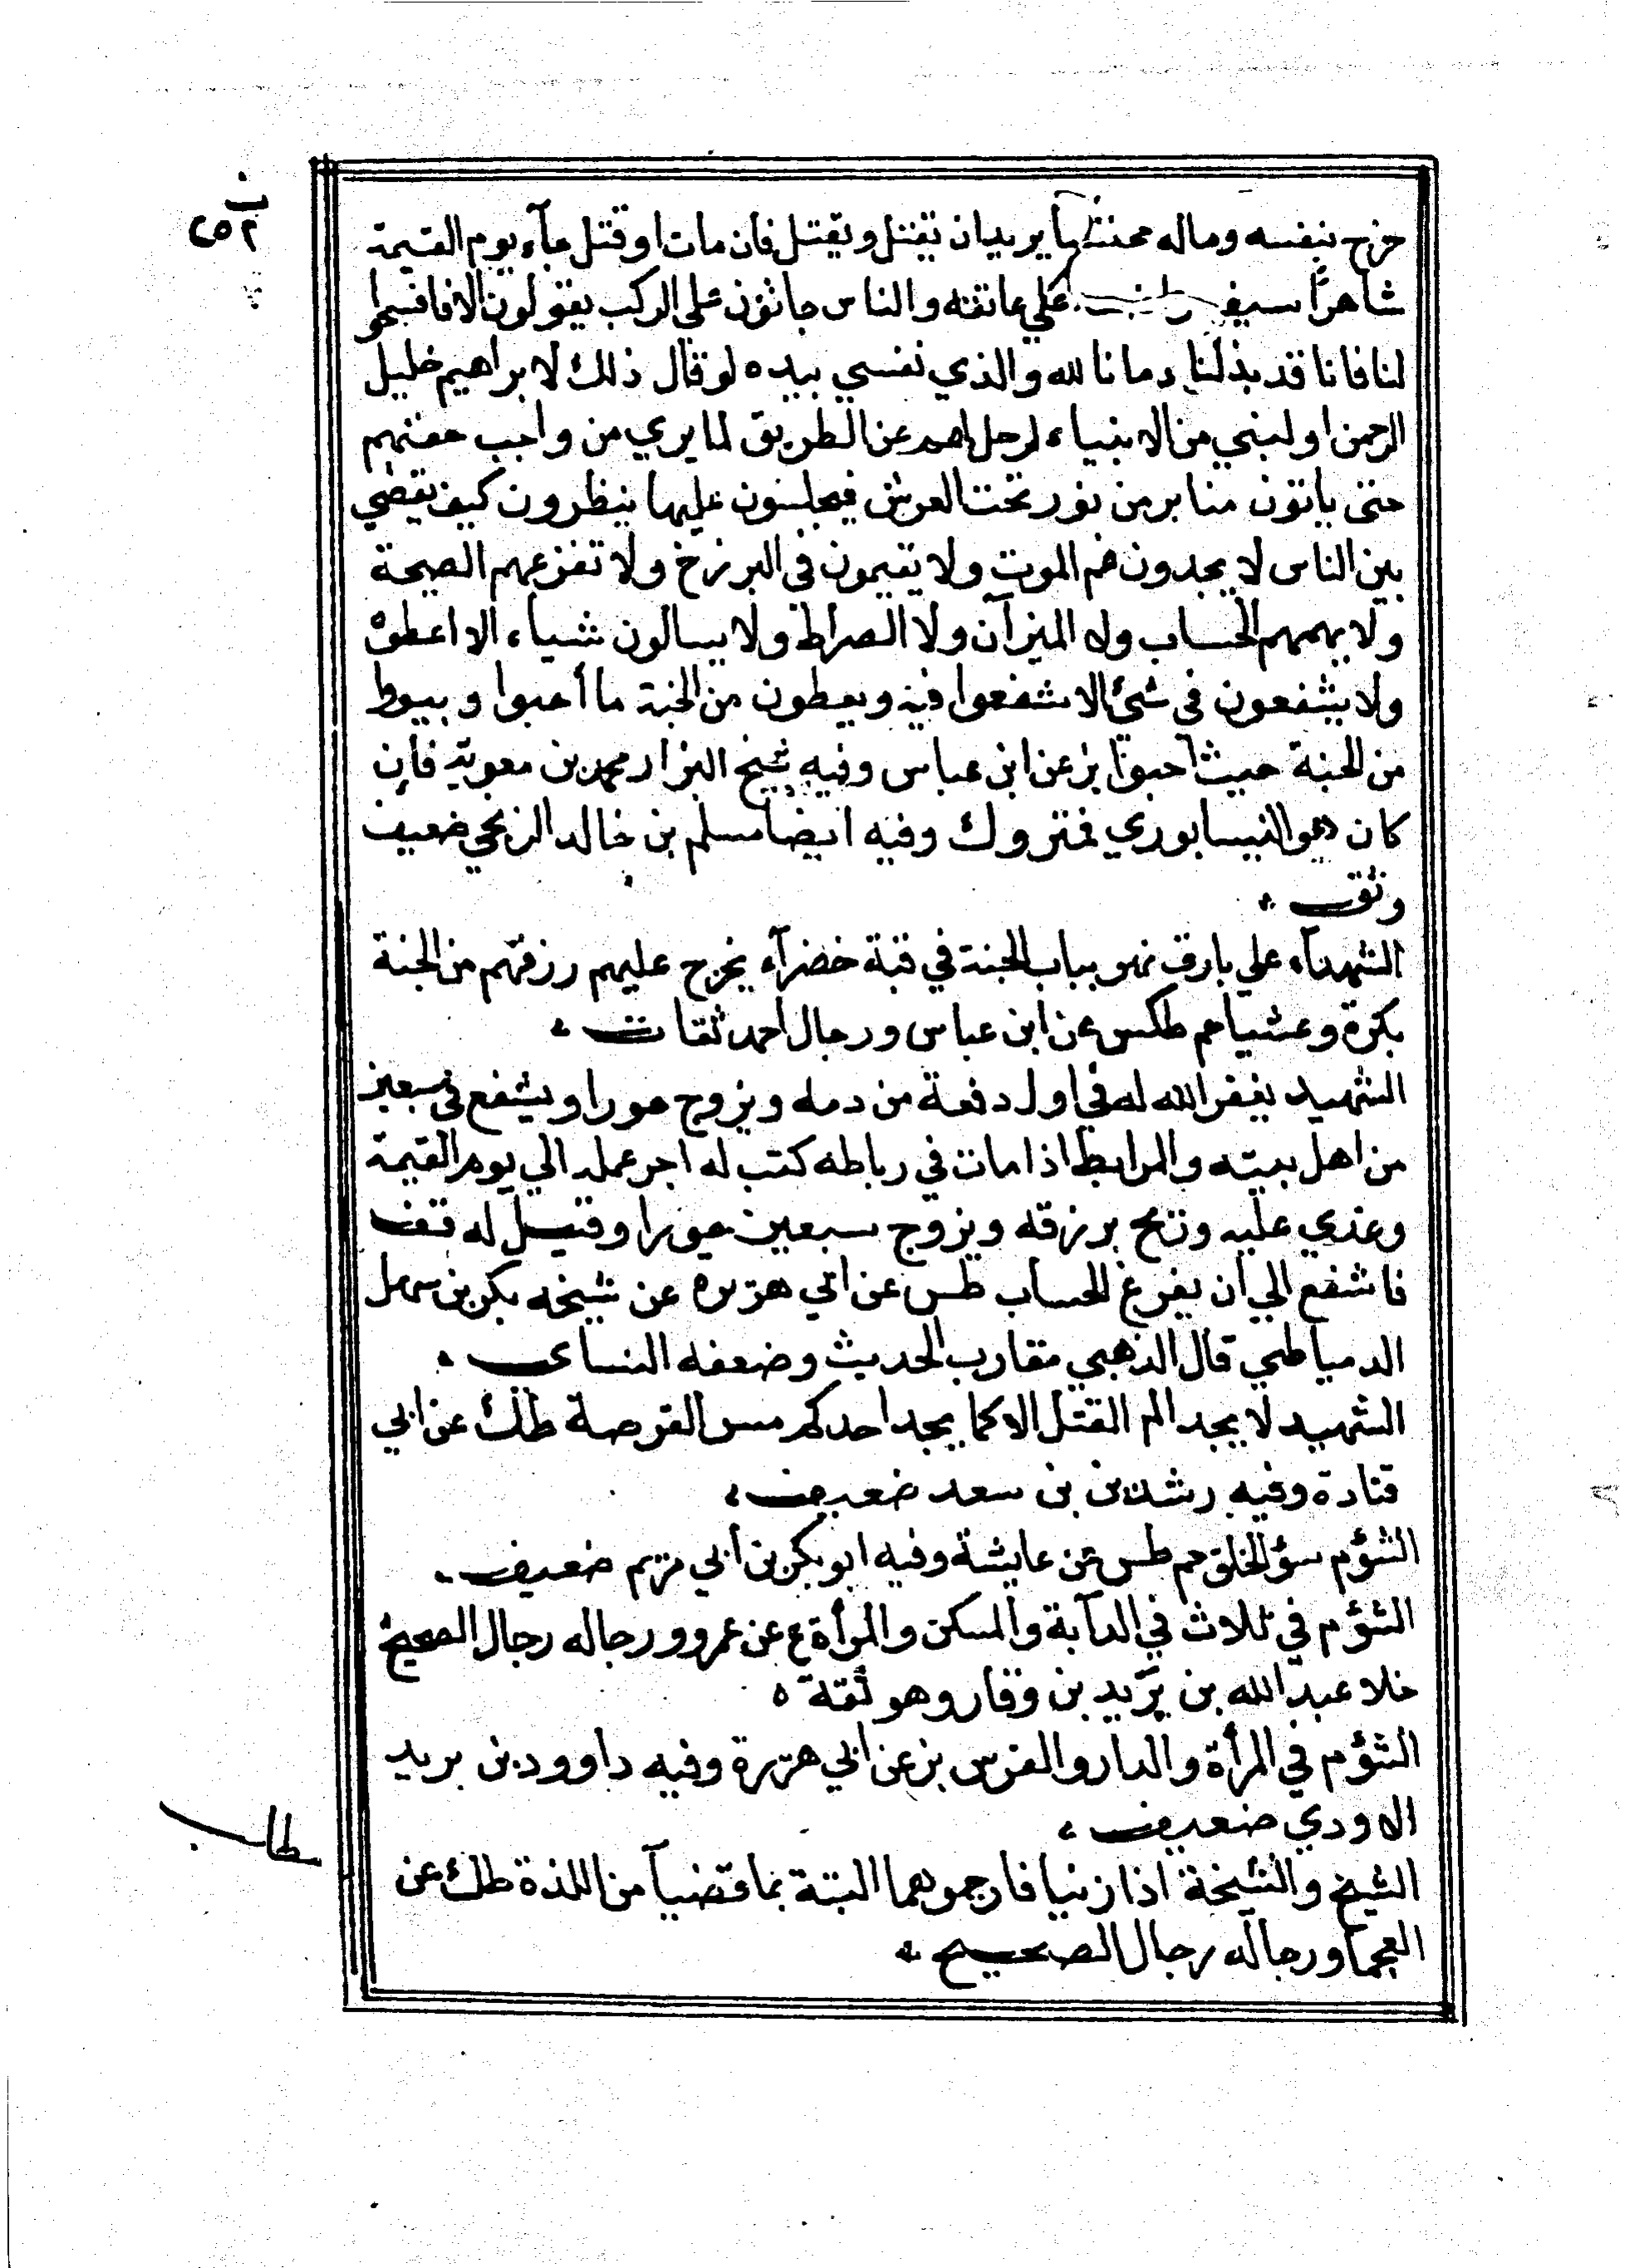 ٢٥٢
خرج بنفسه وماله محتسبا يريد ان يقتل ويقتل فان مات او قتل جآء يوم القيمة
شاهرًا سيفه على عاتقه والناس جاثون على الركب يقولون الا فافسحوا
لنا فانا قد بذلنا دمانا لله والذي نفسي بيده لو قال ذلك لابراهيم خليل
الرحمن او لنبي من الانبياء لرحل لهم عن الطريق لما يري من واجب حقهم
حتى ياتون منابر من نور تحت العرش فيجلسون عليها ينظرون كيف يقضي
بين الناس لا يجدون غم الموت ولا يقيمون في البرزخ ولا تفزعهم الصيحة
ولا يهمهم الحساب ولا الميزآن ولا الصراط ولا يسالون شياء الا اعطوه
ولا يشفعون في شيئ الا شفعوا فيه ويعطون من الجنة ما أحبوا و يبوا
من الجنة حيث احبوا بز عن ابن عباس وفيه شيخ البزار محمد بن معوية فان
كان هو النيسابوري فمتروك وفيه ايضا مسلم بن خالد الزنجي ضعيف
وثق
الشهدآء على بارق نهر بباب الجنة في قبة خضرآء يخرج عليهم رزقهم من الجنة
بكرة وعشيا حم طكس عن ابن عباس ورجال احمد ثقات
الشهيد يغفر الله له في اول دفعة من دمه ويزوج حورا ويشفع في سبعين
من اهل بيته والمرابط اذا مات في رباطه كتب له اجر عمله الي يوم القيمة
وغذي عليه وريح برزقه ويزوج سبعين حورا وقيل له قف
فاشفع الي ان يفرغ الحساب طس عن ابي هريره عن شيخه بكر بن سهل
الدمياطي قال الذهبي مقارب الحديث وضعفه النساءى
الشهيد لا يجد الم القتل الا كما يجد احدكم مس القرصة طك عن ابي
قتادة وفيه رشدين بن سعد ضعيف
الشؤم سؤ الخلق حم طس عن عايشة وفيه ابو بكر بن أبي مريم ضعيف
الشؤم في ثلاث في الدآبة والمسكن والمرأة ع عن عمرو ورجاله رجال الصحيح
خلا عبد الله بن يزيد بن وقار وهو ثقة
الشؤم في المرأة والدار والفرس بز عن ابي هريرة وفيه داوود بن يريد
الاودي ضعيف
مطالب
الشيخ والشيخة اذا زنيا فارجموهما البتة بما قضيا من اللذة طك عن
العجما ورجاله رجال الصحيح